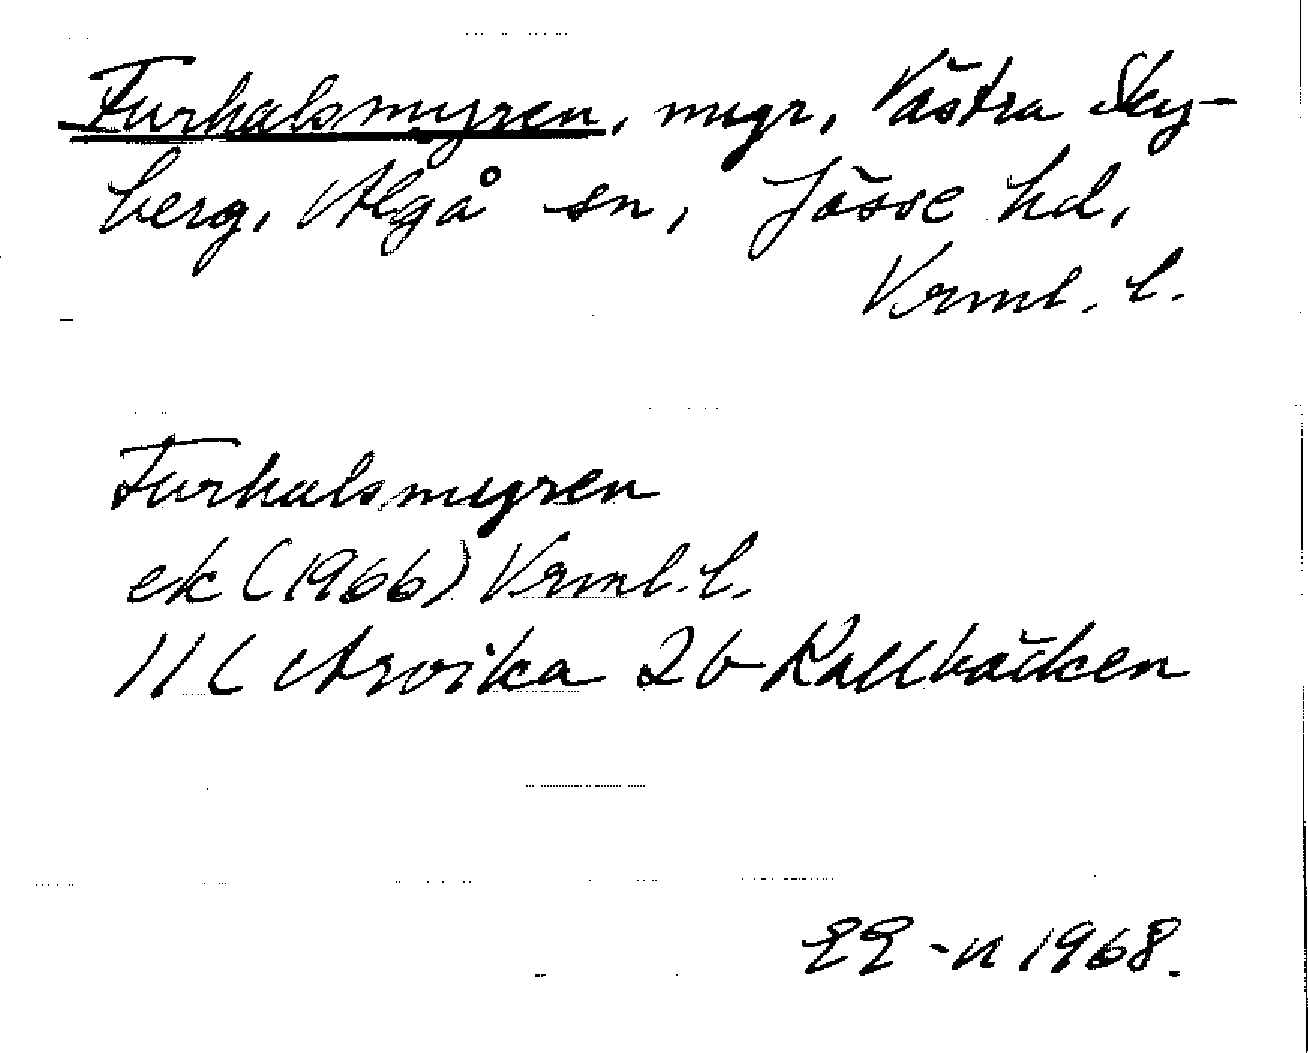 Furhalsmyren, myr, Västra Sky-
berg, Älgå sn, Jösse hd,
Vrml. l.
Furhalsmyren
ek (1966) Vrml. l.
11C Arvika 2b Kallbäcken
EE-n 1968.